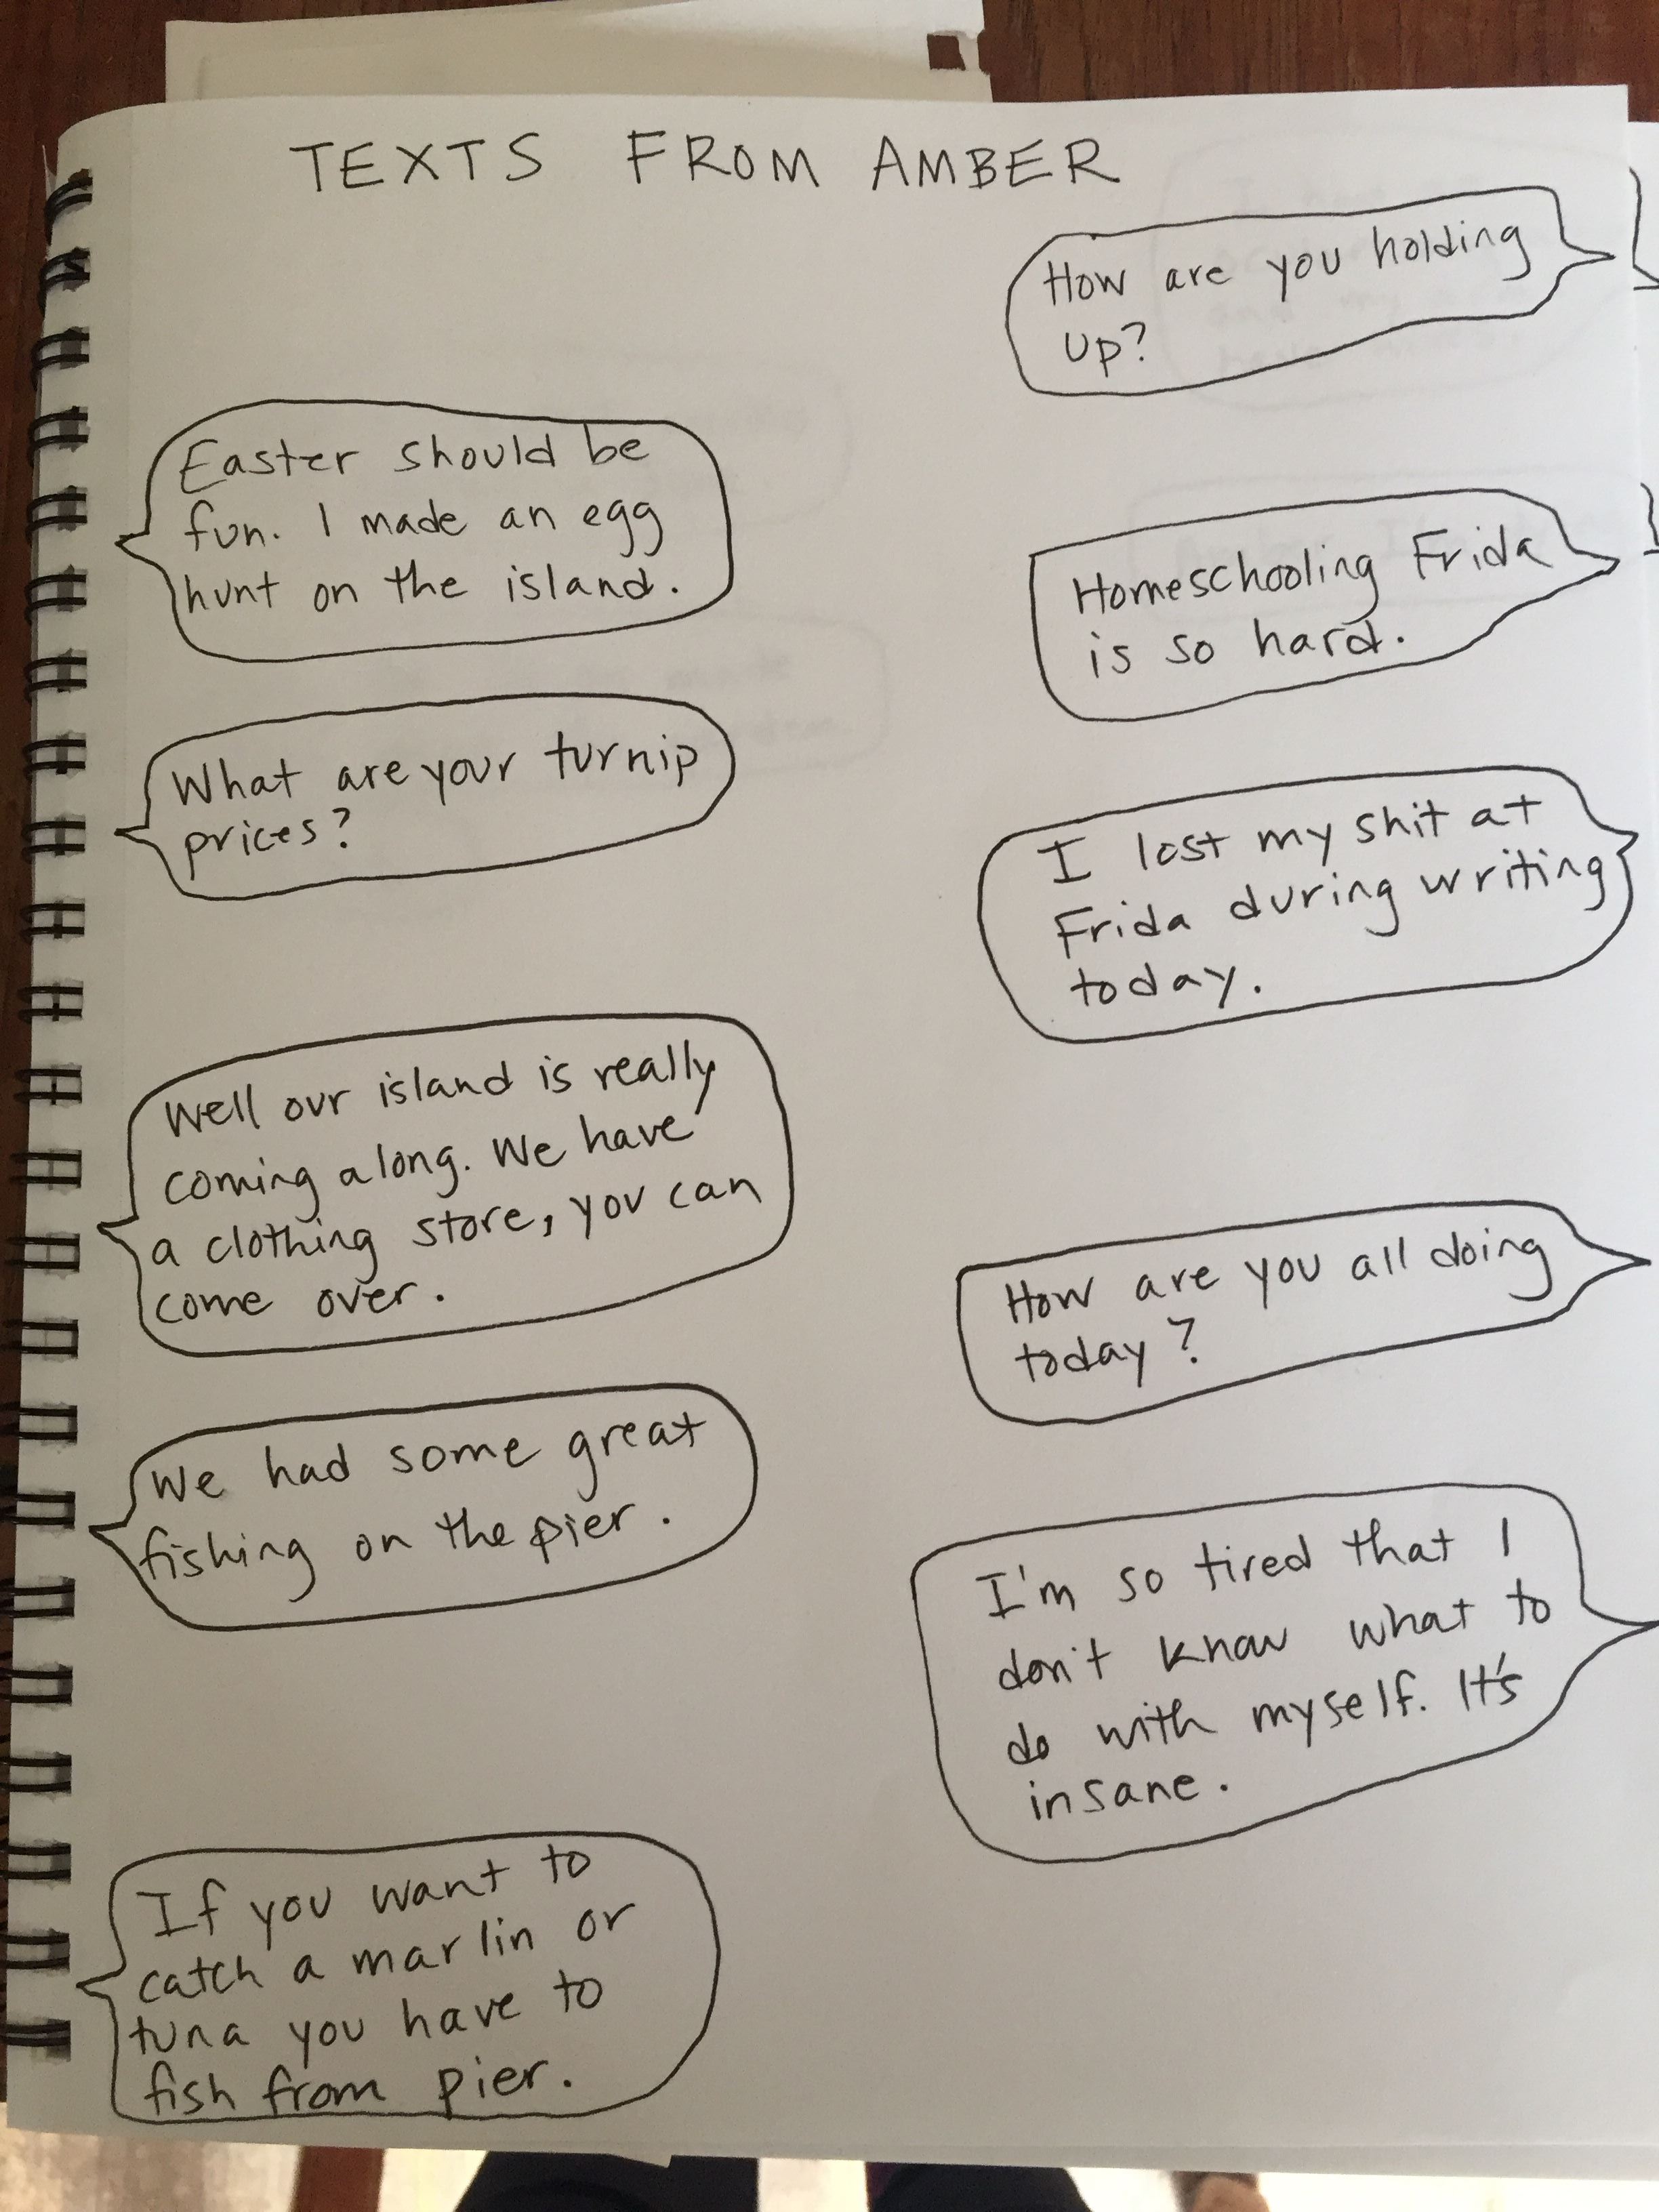 TEXTS FROM AMBER
How are you holding
up?
Easter should be
fun. I made an egg
hunt on the island.
Homeschooling Frida
is so hard.
What are your turnip
prices?
I lost my shit at
Frida during writing
today.
Well our island is really
coming along. We have
a clothing store, you can
come over.
How are you all doing
today?
We had some great
fishing on the pier.
I'm so tired that I
don't know what to
do with myself. It's
insane.
If you want to
catch a marlin or
tuna you have to
fish from pier.